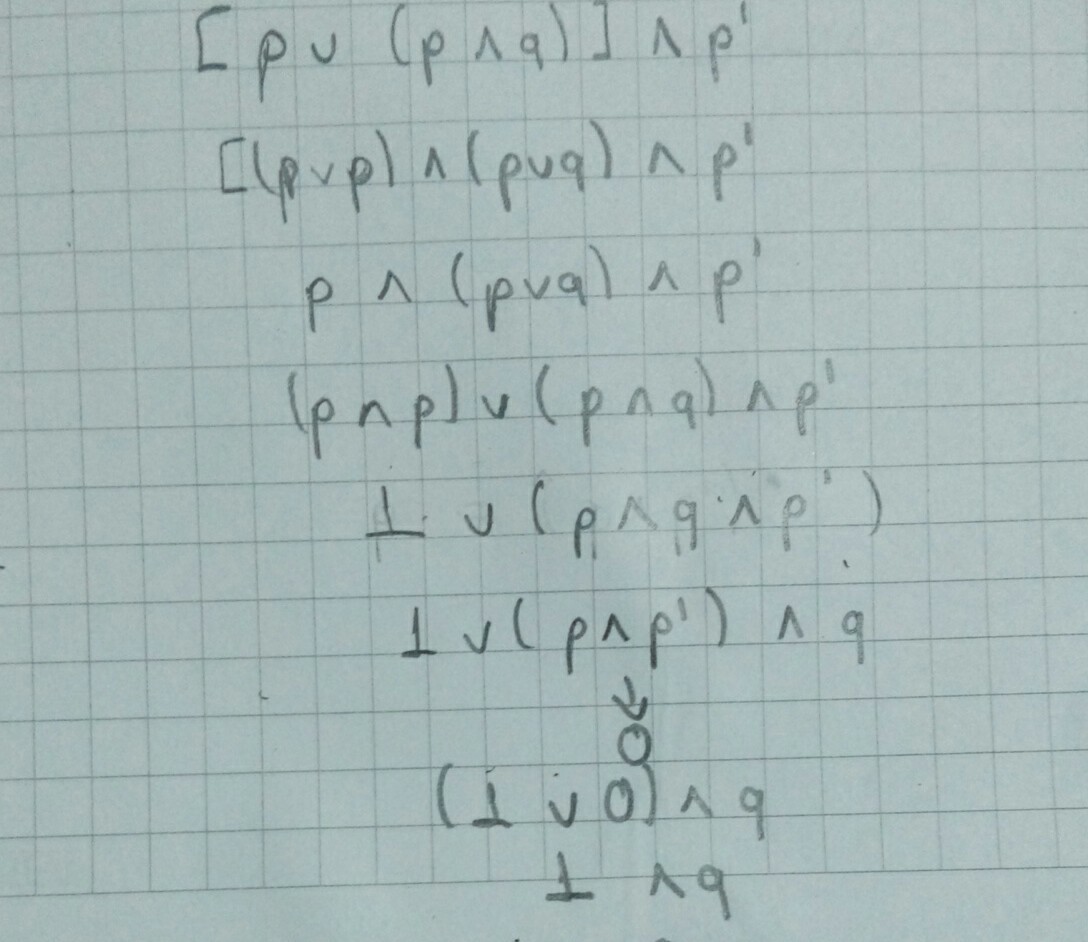 [ p ∨ (p ∧ q) ] ∧ p'
[(p ∨ p) ∧ (p ∨ q) ∧ p'
p ∧ (p ∨ q) ∧ p'
(p ∧ p) ∨ (p ∧ q) ∧ p'
1 ∨ (p ∧ q ∧ p')
1 ∨ (p ∧ p') ∧ q
↓
0
(1 ∨ 0) ∧ q
1 ∧ q